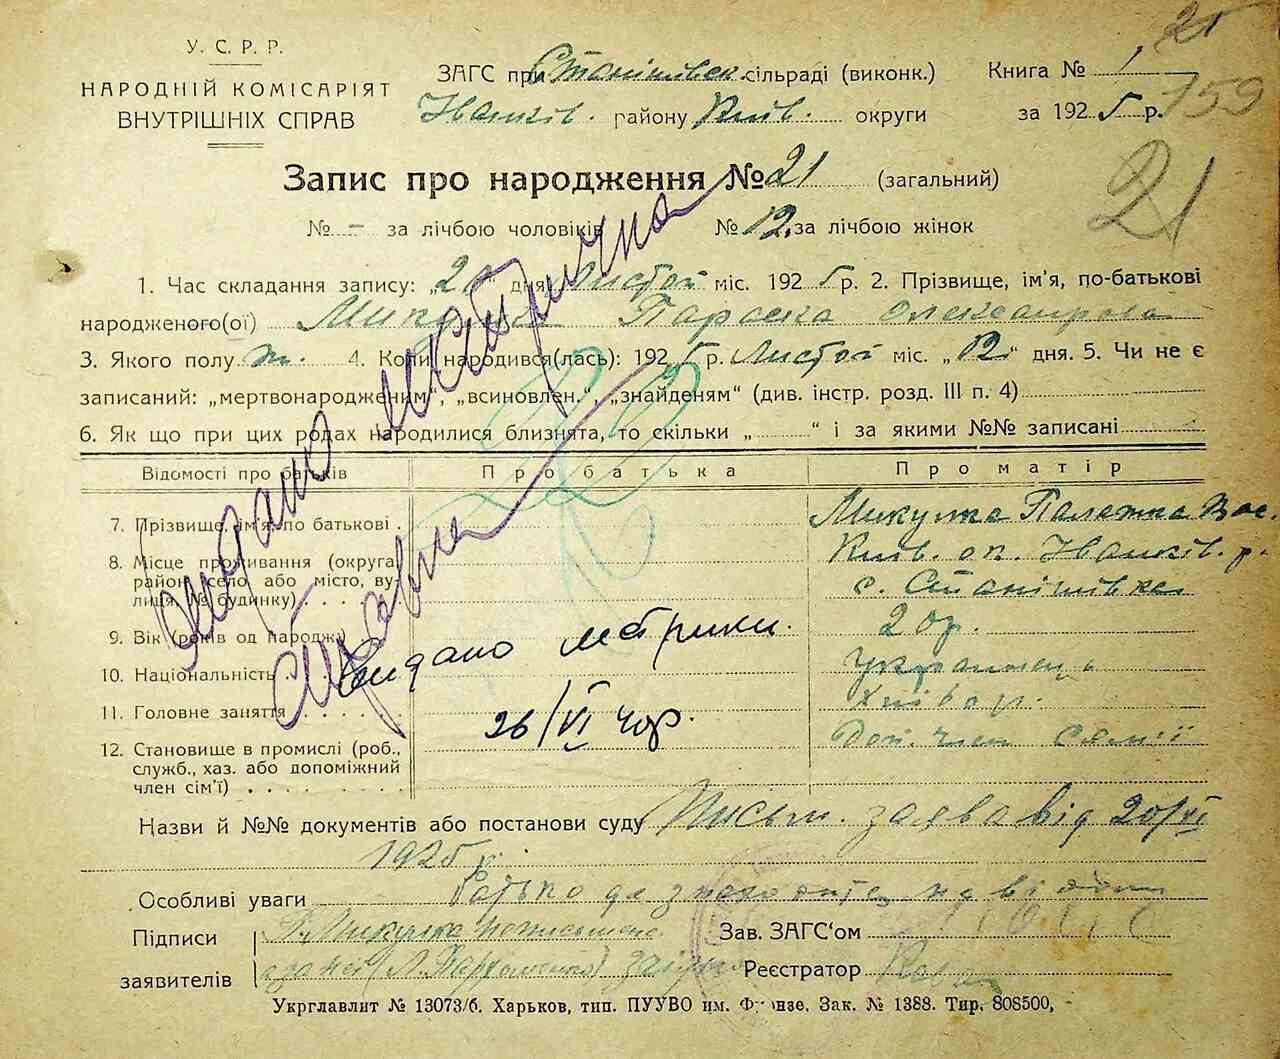 У. С. Р. Р.
НАРОДНІЙ КОМІСАРІЯТ
ВНУТРІШНІХ СПРАВ
ЗАГС при Станішевск. сільраді (виконк.)
Іванків. району Київ. округи
Книга № 1
за 1925 р.
159
21
Запис про народження № 21 (загальний)
№ – за лічбою чоловіків № 12. за лічбою жінок
1. Час складання запису: „20“ дня Листоп міс. 1925 р. 2. Прізвище, ім’я, по-батькові
народженого(ої) Параска Олександровна
3. Якого полу ж. 4. Коли народився(лась): 1925 р. Листоп міс. „12“ дня. 5. Чи не є
записаний: „мертвонародженим“, „всиновлен.“, „знайденям“ (див. інстр. розд. III п. 4)
6. Як що при цих родах народилися близнята, то скільки „ “ і за якими №№ записані
Відомості про батьків Про батька Про матір
7. Прізвище, ім’я, по батькові . Микулка Палажка Вас.
8. Місце проживання (округа Київ. ок. Іванків. р.
район, село або місто, ву- с. Станішівка
лиця, № будинку) . . .
9. Вік (років од народж.) 20 р.
10. Національність українець
11. Головне заняття хлібор.
12. Становище в промислі (роб., Доп. член семії
служб., хаз. або допоміжний
член сім’ї)
Видано метрична
справка
Видано метрики.
26/VI 40р.
Назви й №№ документів або постанови суду Письм. заява від 20/XI
1925 р.
Особливі уваги Батько де знаходится не відомо
Підписи
заявителів
Микулка неписьмена
Зав. ЗАГС‘ом
Реєстратор
Укрглавлит № 13073/б. Харьков, тип. ПУУВО им. Фрунзе. Зак. № 1388. Тир. 808500,